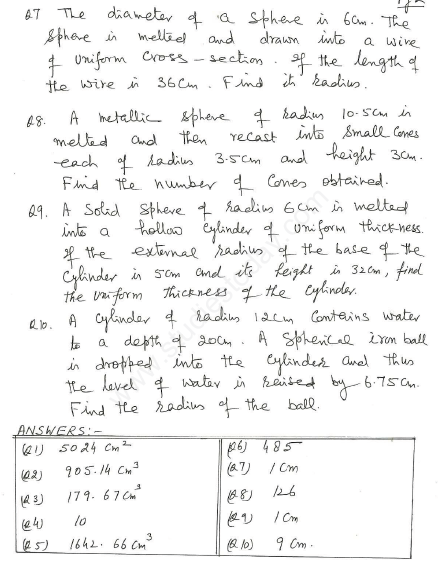 Q7 The diameter of a sphere is 6cm. The
sphere is melted and drawn into a wire
of uniform cross-section. If the length of
the wire is 36cm. Find its radius.
Q8. A metallic sphere of radius 10.5cm is
melted and then recast into small cones
each of radius 3.5cm and height 3cm.
Find the number of cones obtained.
Q9. A solid sphere of radius 6cm is melted
into a hollow cylinder of uniform thickness.
If the external radius of the base of the
cylinder is 5cm and its height is 32cm, find
the uniform thickness of the cylinder.
Q10. A cylinder of radius 12cm contains water
to a depth of 20cm. A spherical iron ball
is dropped into the cylinder and thus
the level of water is raised by 6.75cm.
Find the radius of the ball.
ANSWERS:-
(Q1) 5024 cm²
(Q2) 905.14 cm³
(Q3) 179.67cm³
(Q4) 10
(Q5) 1642.66 cm³
(Q6) 485
(Q7) 1 cm
(Q8) 126
(Q9) 1cm
(Q10) 9 cm.